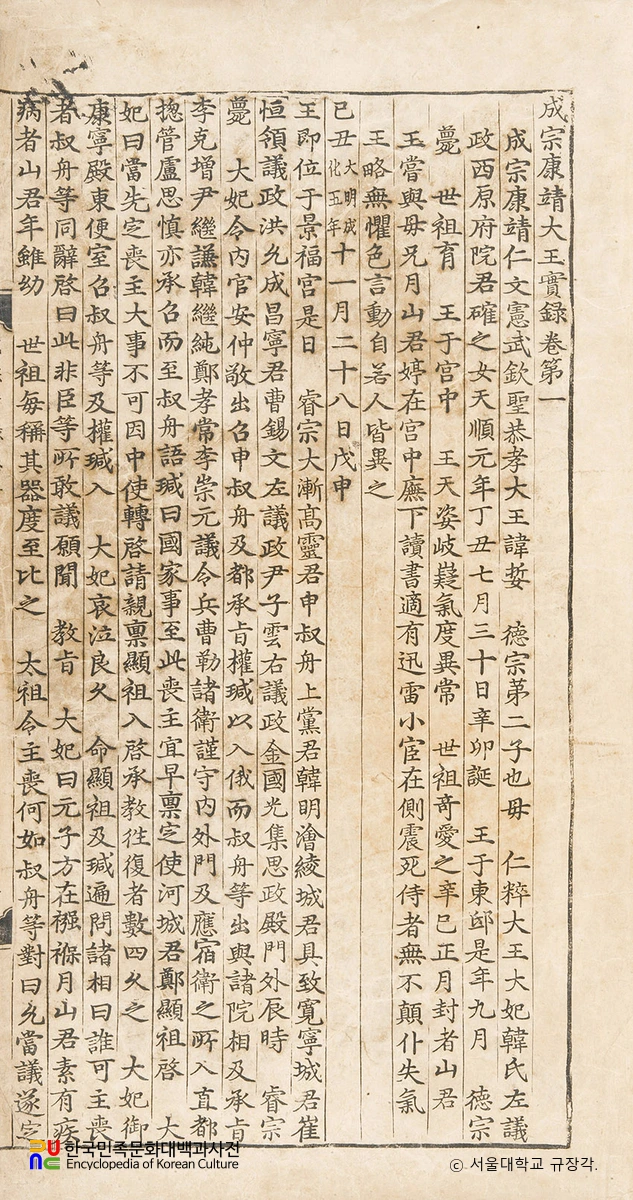 成宗康靖大王實錄卷第一
成宗康靖仁文憲武欽聖恭孝大王諱娎 德宗第二子也母 仁粹大王大妃韓氏左議
政西原府院君確之女天順元年丁丑七月三十日辛卯誕 王于東邸是年九月 德宗
薨 世祖育 王于宮中 王天姿岐嶷氣度異常 世祖奇愛之辛巳正月封者山君
王嘗與母兄月山君婷在宮中廡下讀書適有迅雷小宦在側震死侍者無不顚仆失氣
王略無懼色言動自若人皆異之
己丑大明成化五年十一月二十八日戊申
王即位于景福宮是日 睿宗大漸高靈君申叔舟上黨君韓明澮綾城君具致寬寧城君崔
恒領議政洪允成昌寧君曹錫文左議政尹子雲右議政金國光集思政殿門外辰時 睿宗
薨 大妃令內官安仲敬出召申叔舟及都承旨權瑊以入俄而叔舟等出與諸院相及承旨
李克增尹繼謙韓繼純鄭孝常李崇元議令兵曹勒諸衛謹守內外門及應宿衛之所入直都
摠管盧思愼亦承召而至叔舟語瑊曰國家事至此喪主宜早稟定使河城君鄭顯祖啓 大
妃曰當先定喪主大事不可因中使轉啓請親稟顯祖入啓承教徃復者數四久之 大妃御
康寧殿東便室召叔舟等及權瑊入 大妃哀泣良久 命顯祖及瑊遍問諸相曰誰可主喪
者叔舟等同辭啓曰此非臣等所敢議願聞 教旨 大妃曰元子方在襁褓月山君素有疾
病者山君年雖幼 世祖每稱其器度至比之 太祖令主喪何如叔舟等對曰允當議遂定
한국민족문화대백과사전
Encyclopedia of Korean Culture
ⓒ 서울대학교 규장각.